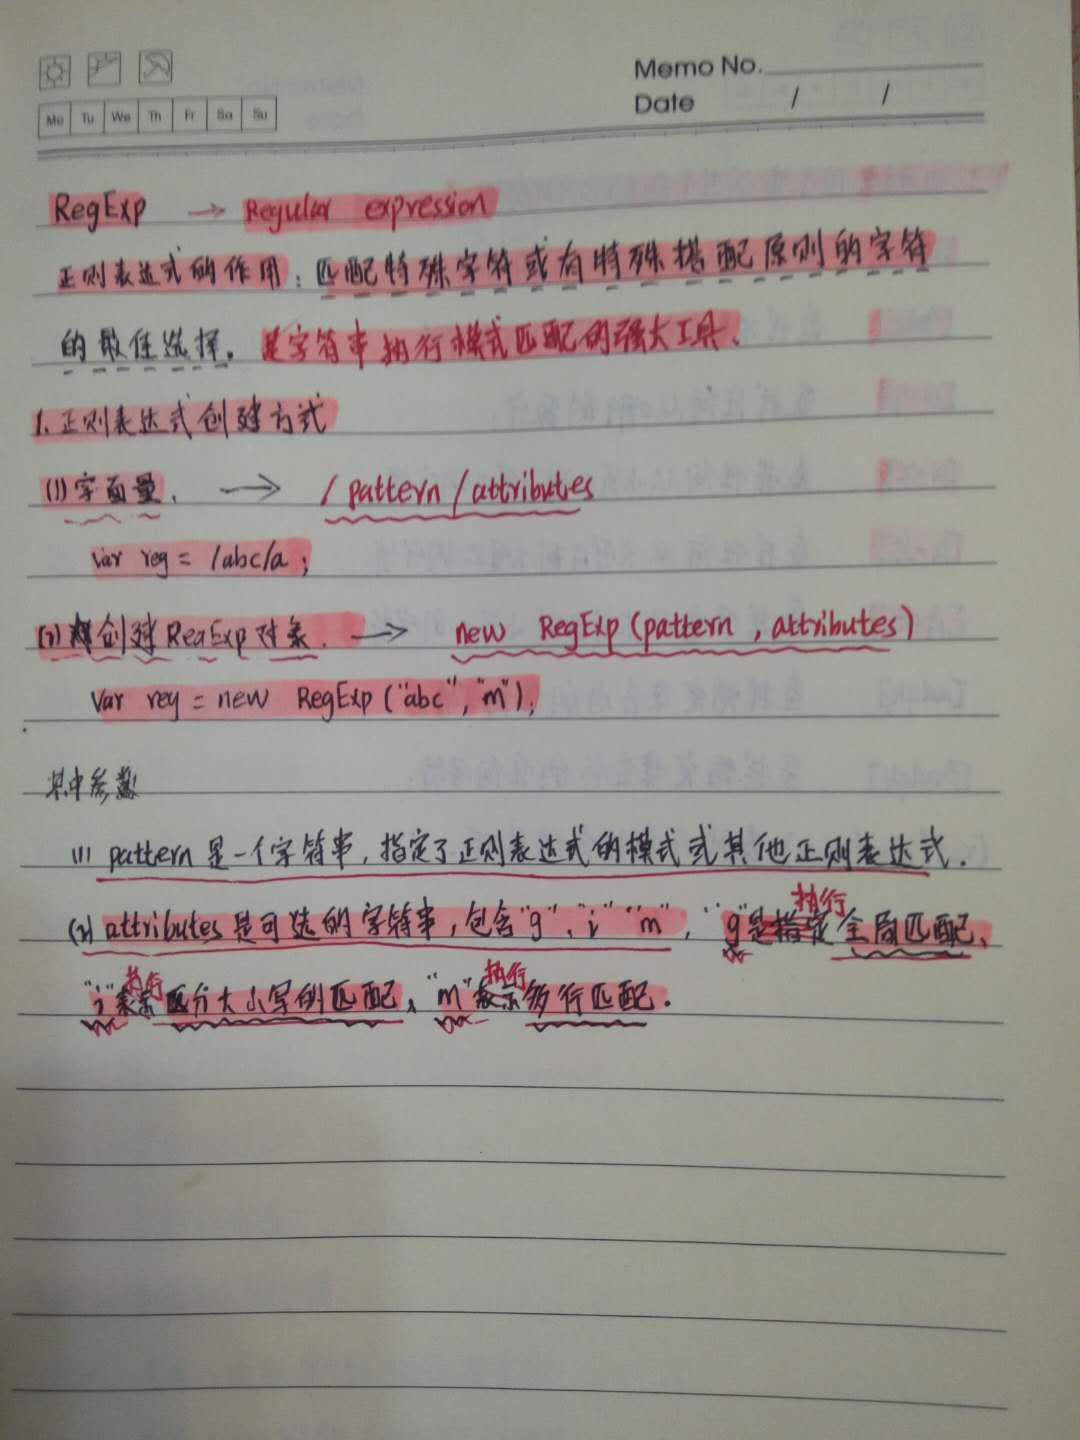 Memo No.
Mo Tu We Th Fr Sa Su
Date / /
RegExp → Regular expression
正则表达式的作用：匹配特殊字符或有特殊搭配原则的字符
的最佳选择。是字符串执行模式匹配的强大工具、
1、正则表达式创建方式
(1) 字面量、 → / pattern / attributes
var reg = /abc/a ;
(2) 创建 RegExp 对象. → new RegExp (pattern , attributes)
var reg = new RegExp ("abc","m");
其中参数
(1) pattern 是一个字符串，指定了正则表达式的模式或其他正则表达式.
执行
(2) attributes 是可选的字符串，包含"g"、"i" "m"，"g"是指定全局匹配、
执行 执行
"i"表示区分大小写的匹配、"m"表示多行匹配.